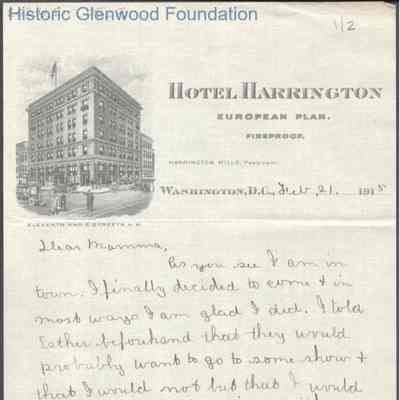 Historic Glenwood Foundation
1/2
HOTEL HARRINGTON
EUROPEAN PLAN.
FIREPROOF.
HARRINGTON MILLS, President.
WASHINGTON, D.C., Feb, 21. 1915
ELEVENTH AND E STREETS N.W.
Dear Mamma,
As you see I am in
town. I finally decided to come & in
most ways I am glad I did. I told
Esther beforehand that they would
probably want to go to some show &
that I would not but that I would